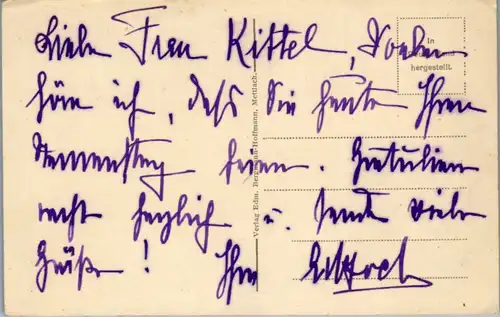 Liebe Frau Kittel, Soeben
höre ich, daß Sie heute Ihren
Namenstag feiern. Gratuliere
recht herzlich u. sende viele
Grüße! Ihr
In
hergestellt.
Verlag Edm. Bergmann-Hoffmann, Mettlach.